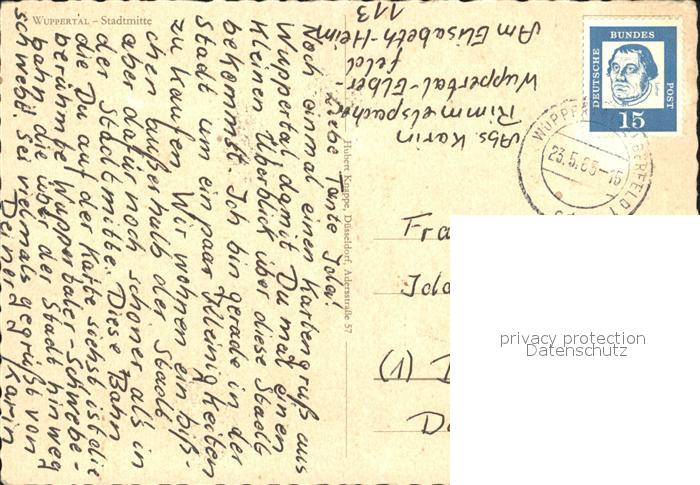 WUPPERTAL – Stadtmitte
Liebe Tante Ida!
Noch einmal einen Kartengruß aus
Wuppertal, damit Du mal einen
kleinen Überblick über diese Stadt
bekommst. Ich bin gerade in der
Stadt um ein paar Kleinigkeiten
zu kaufen. Wir wohnen ein biß-
chen außerhalb der Stadt
aber dafür noch schöner als in
der Stadtmitte. Diese Bahn
die Du auf der Karte siehst, ist die
berühmte Wuppertaler-Schwebe-
bahn die über der Stadt hinweg
schwebt. Sei vielmals gegrüßt von
Deiner Karin
Hubert Knuppe, Düsseldorf, Adersstraße 57
Abs. Karin
Rimmelspacher
Wuppertal-Elber-
feld
Am Elisabeth-Heim
113
DEUTSCHE BUNDES POST
15
WUPPERTAL-ELBERFELD 1
23.5.65-15
Fra
Ida
(1)
privacy protection
Datenschutz